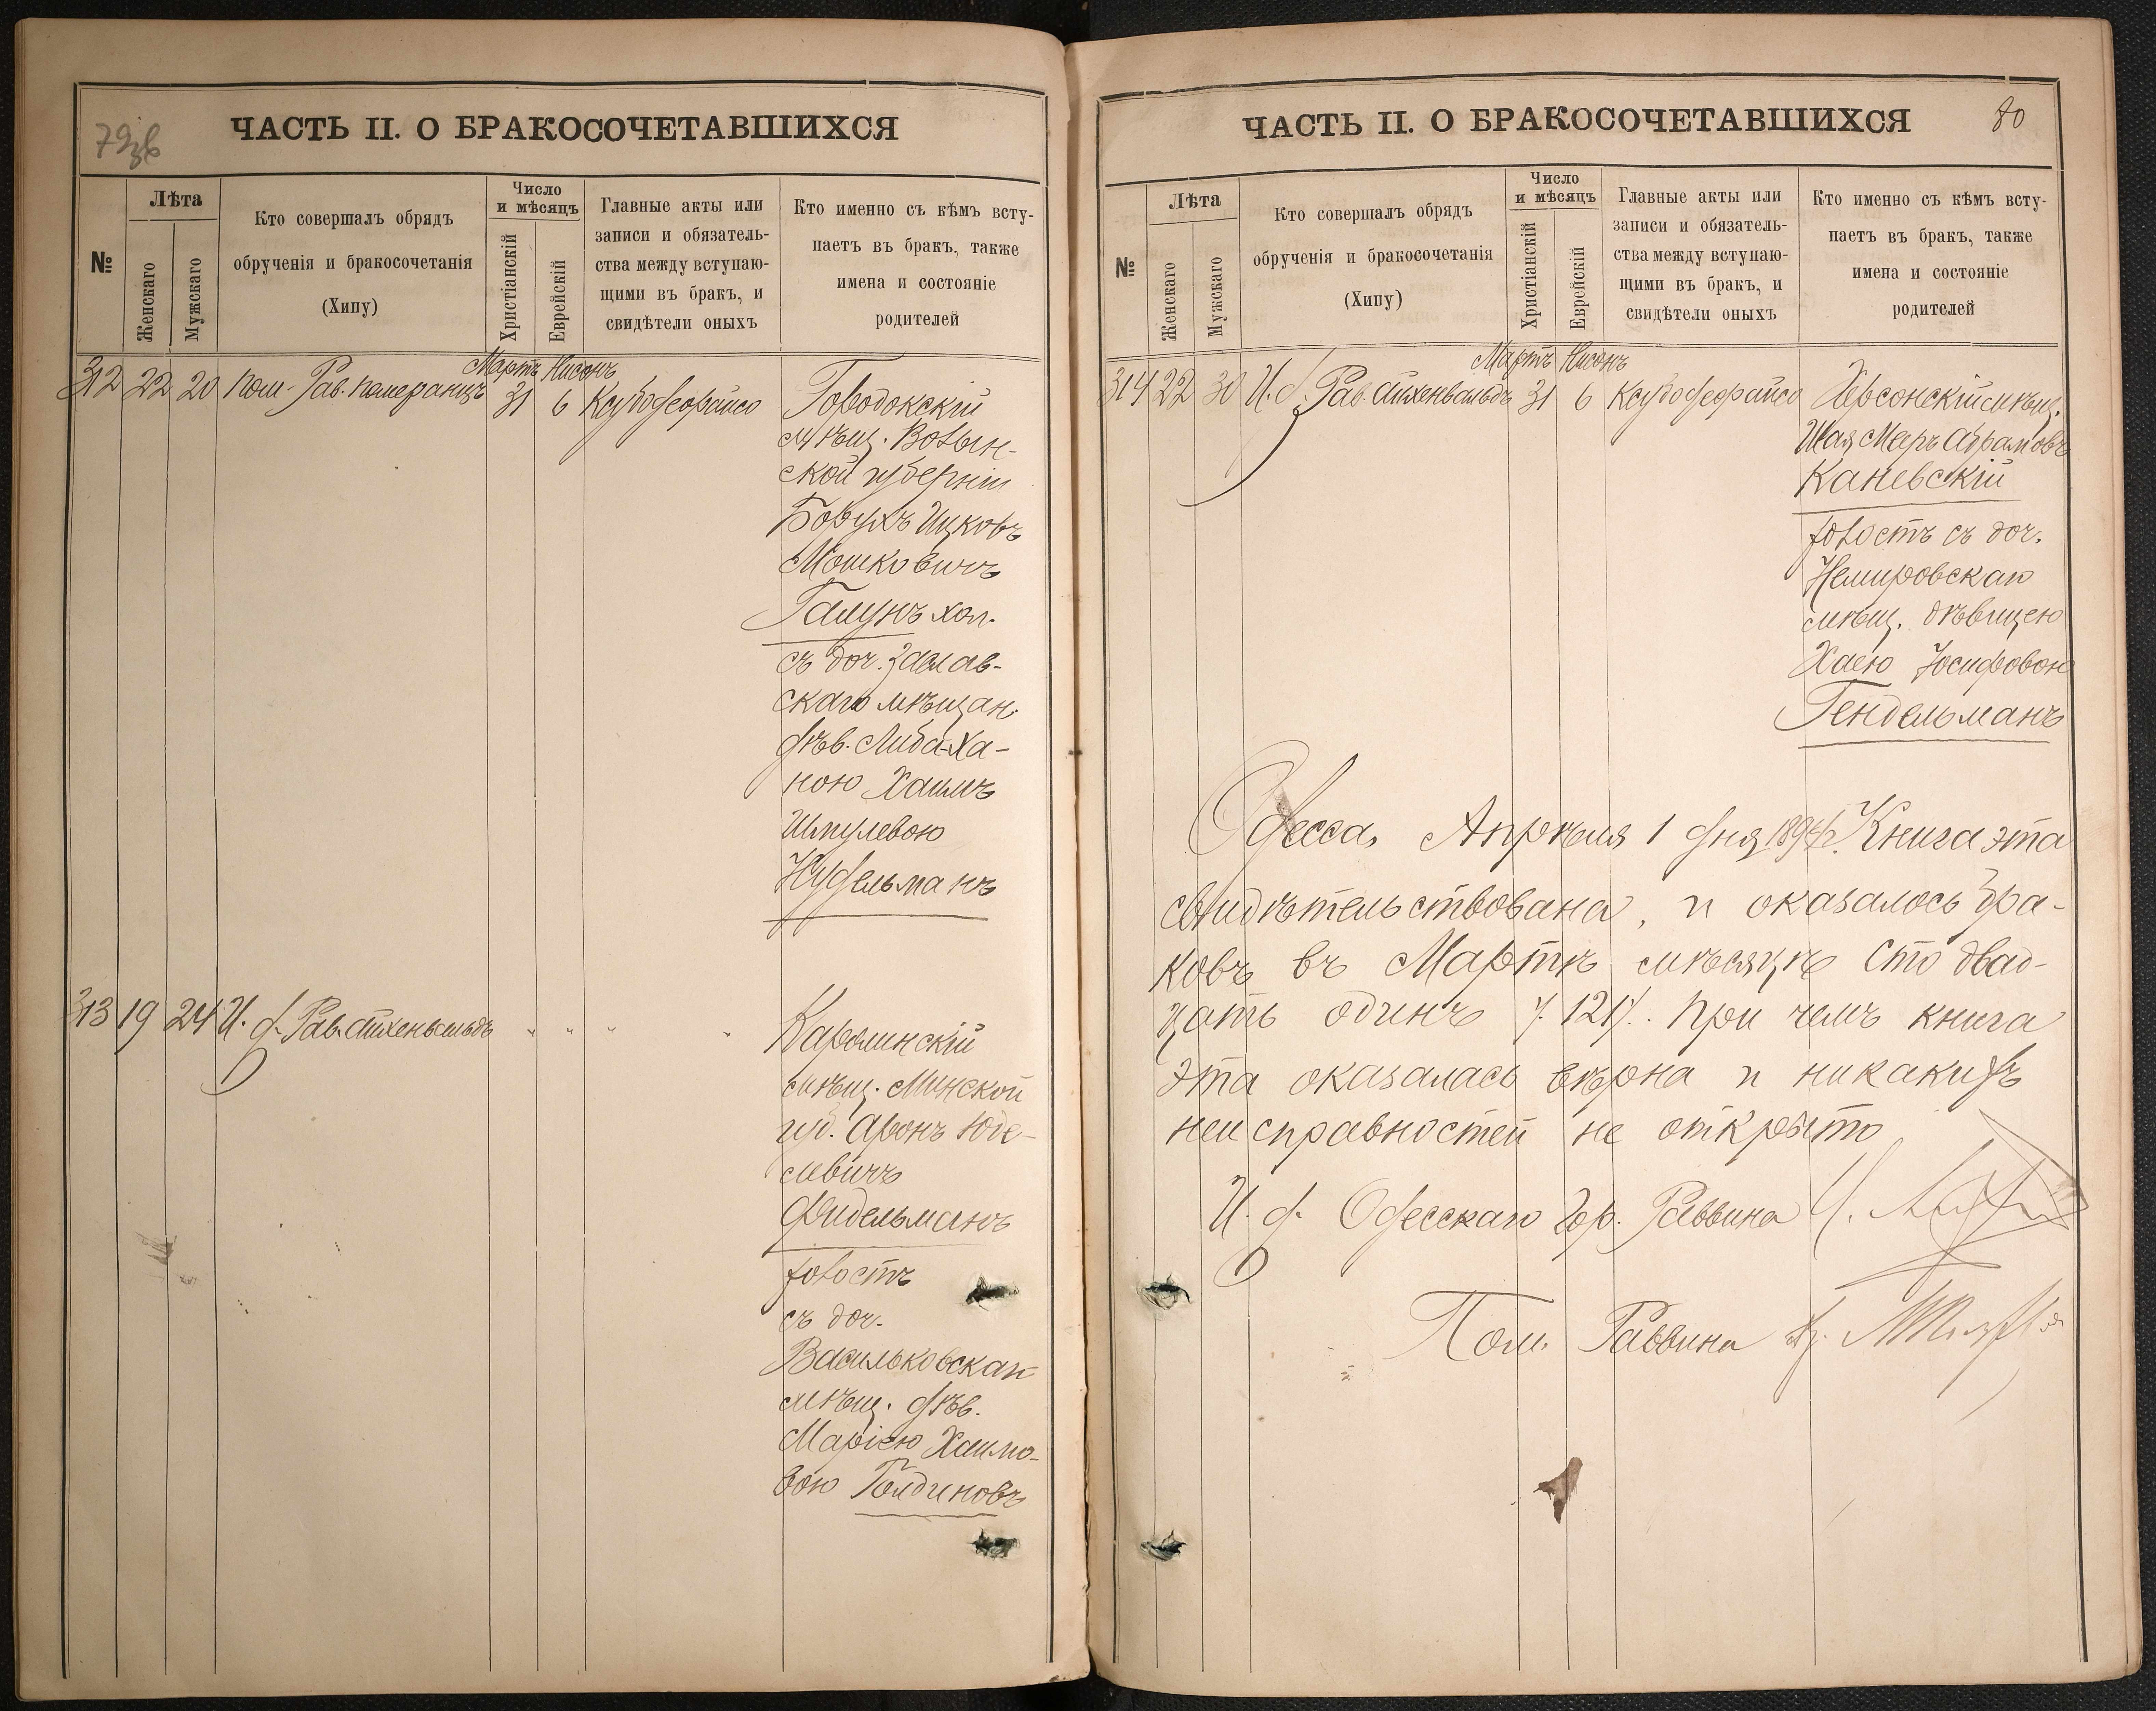 79об
ЧАСТЬ II. О БРАКОСОЧЕТАВШИХСЯ
№
Лѣта
Женскаго
Мужскаго
Кто совершалъ обрядъ
обрученія и бракосочетанія
(Хипу)
Число
и мѣсяцъ
Христіанскій
Еврейскій
Главные акты или
записи и обязатель-
ства между вступаю-
щими въ бракъ, и
свидѣтели оныхъ
Кто именно съ кѣмъ всту-
паетъ въ бракъ, также
имена и состояніе
родителей
Мартъ Нисонъ
312 22 20 Пом. Рав. Померанцъ 31 6
мѣщ. Волын-
ской губерніи
Ицковъ
Мошковичъ
хол.
съ доч. Заслав-
скаго мѣщан.
дѣв. Либа-Ха-
ною Хаимъ
Шмулевою
Нудельманъ
313 19 24 И. д. Рав. Айхенвальдъ " " " "
Каролинскій
мѣщ. Минской
губ. Аронъ Юде-
левичъ
Фидельманъ
холостъ
съ доч.
Васильковскаго
мѣщ. дѣв.
Маріею Хаимо-
вою Голдиновъ
ЧАСТЬ II. О БРАКОСОЧЕТАВШИХСЯ
80
№
Лѣта
Женскаго
Мужскаго
Кто совершалъ обрядъ
обрученія и бракосочетанія
(Хипу)
Число
и мѣсяцъ
Христіанскій
Еврейскій
Главные акты или
записи и обязатель-
ства между вступаю-
щими въ бракъ, и
свидѣтели оныхъ
Кто именно съ кѣмъ всту-
паетъ въ бракъ, также
имена и состояніе
родителей
Мартъ Нисонъ
314 22 30 И. д. Рав. Айхенвальдъ 31 6 Херсонскій мѣщ.
Шая Мееръ Абрамовъ
Каневскій
холостъ съ доч.
Немировскаго
мѣщ. дѣвицею
Хаею Іосифовою
Гендельманъ
Одесса, Апрѣля 1 дня Книга эта
свидѣтельствована, и оказалось бра-
ковъ въ Мартѣ мѣсяцѣ сто двад-
цать одинъ /. 121/. При чемъ книга
эта оказалась вѣрна и никакихъ
неисправностей не открыто
И. д. Одесскаго Гор. Раввина
Пом. Раввина